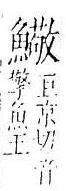 巨京切音
擎魚王